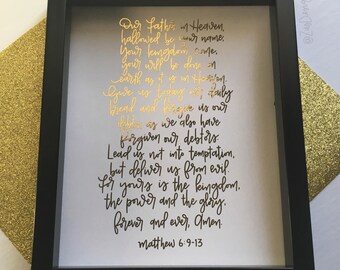 Our Father in Heaven,
hallowed be your name,
Your kingdom come,
your will be done, on
earth as it is in Heaven.
Give us today our daily
bread and forgive us our
debts as we also have
forgiven our debtors.
Lead us not into temptation,
but deliver us from evil.
For yours is the kingdom,
the power and the glory,
forever and ever, Amen.
matthew 6:9-13